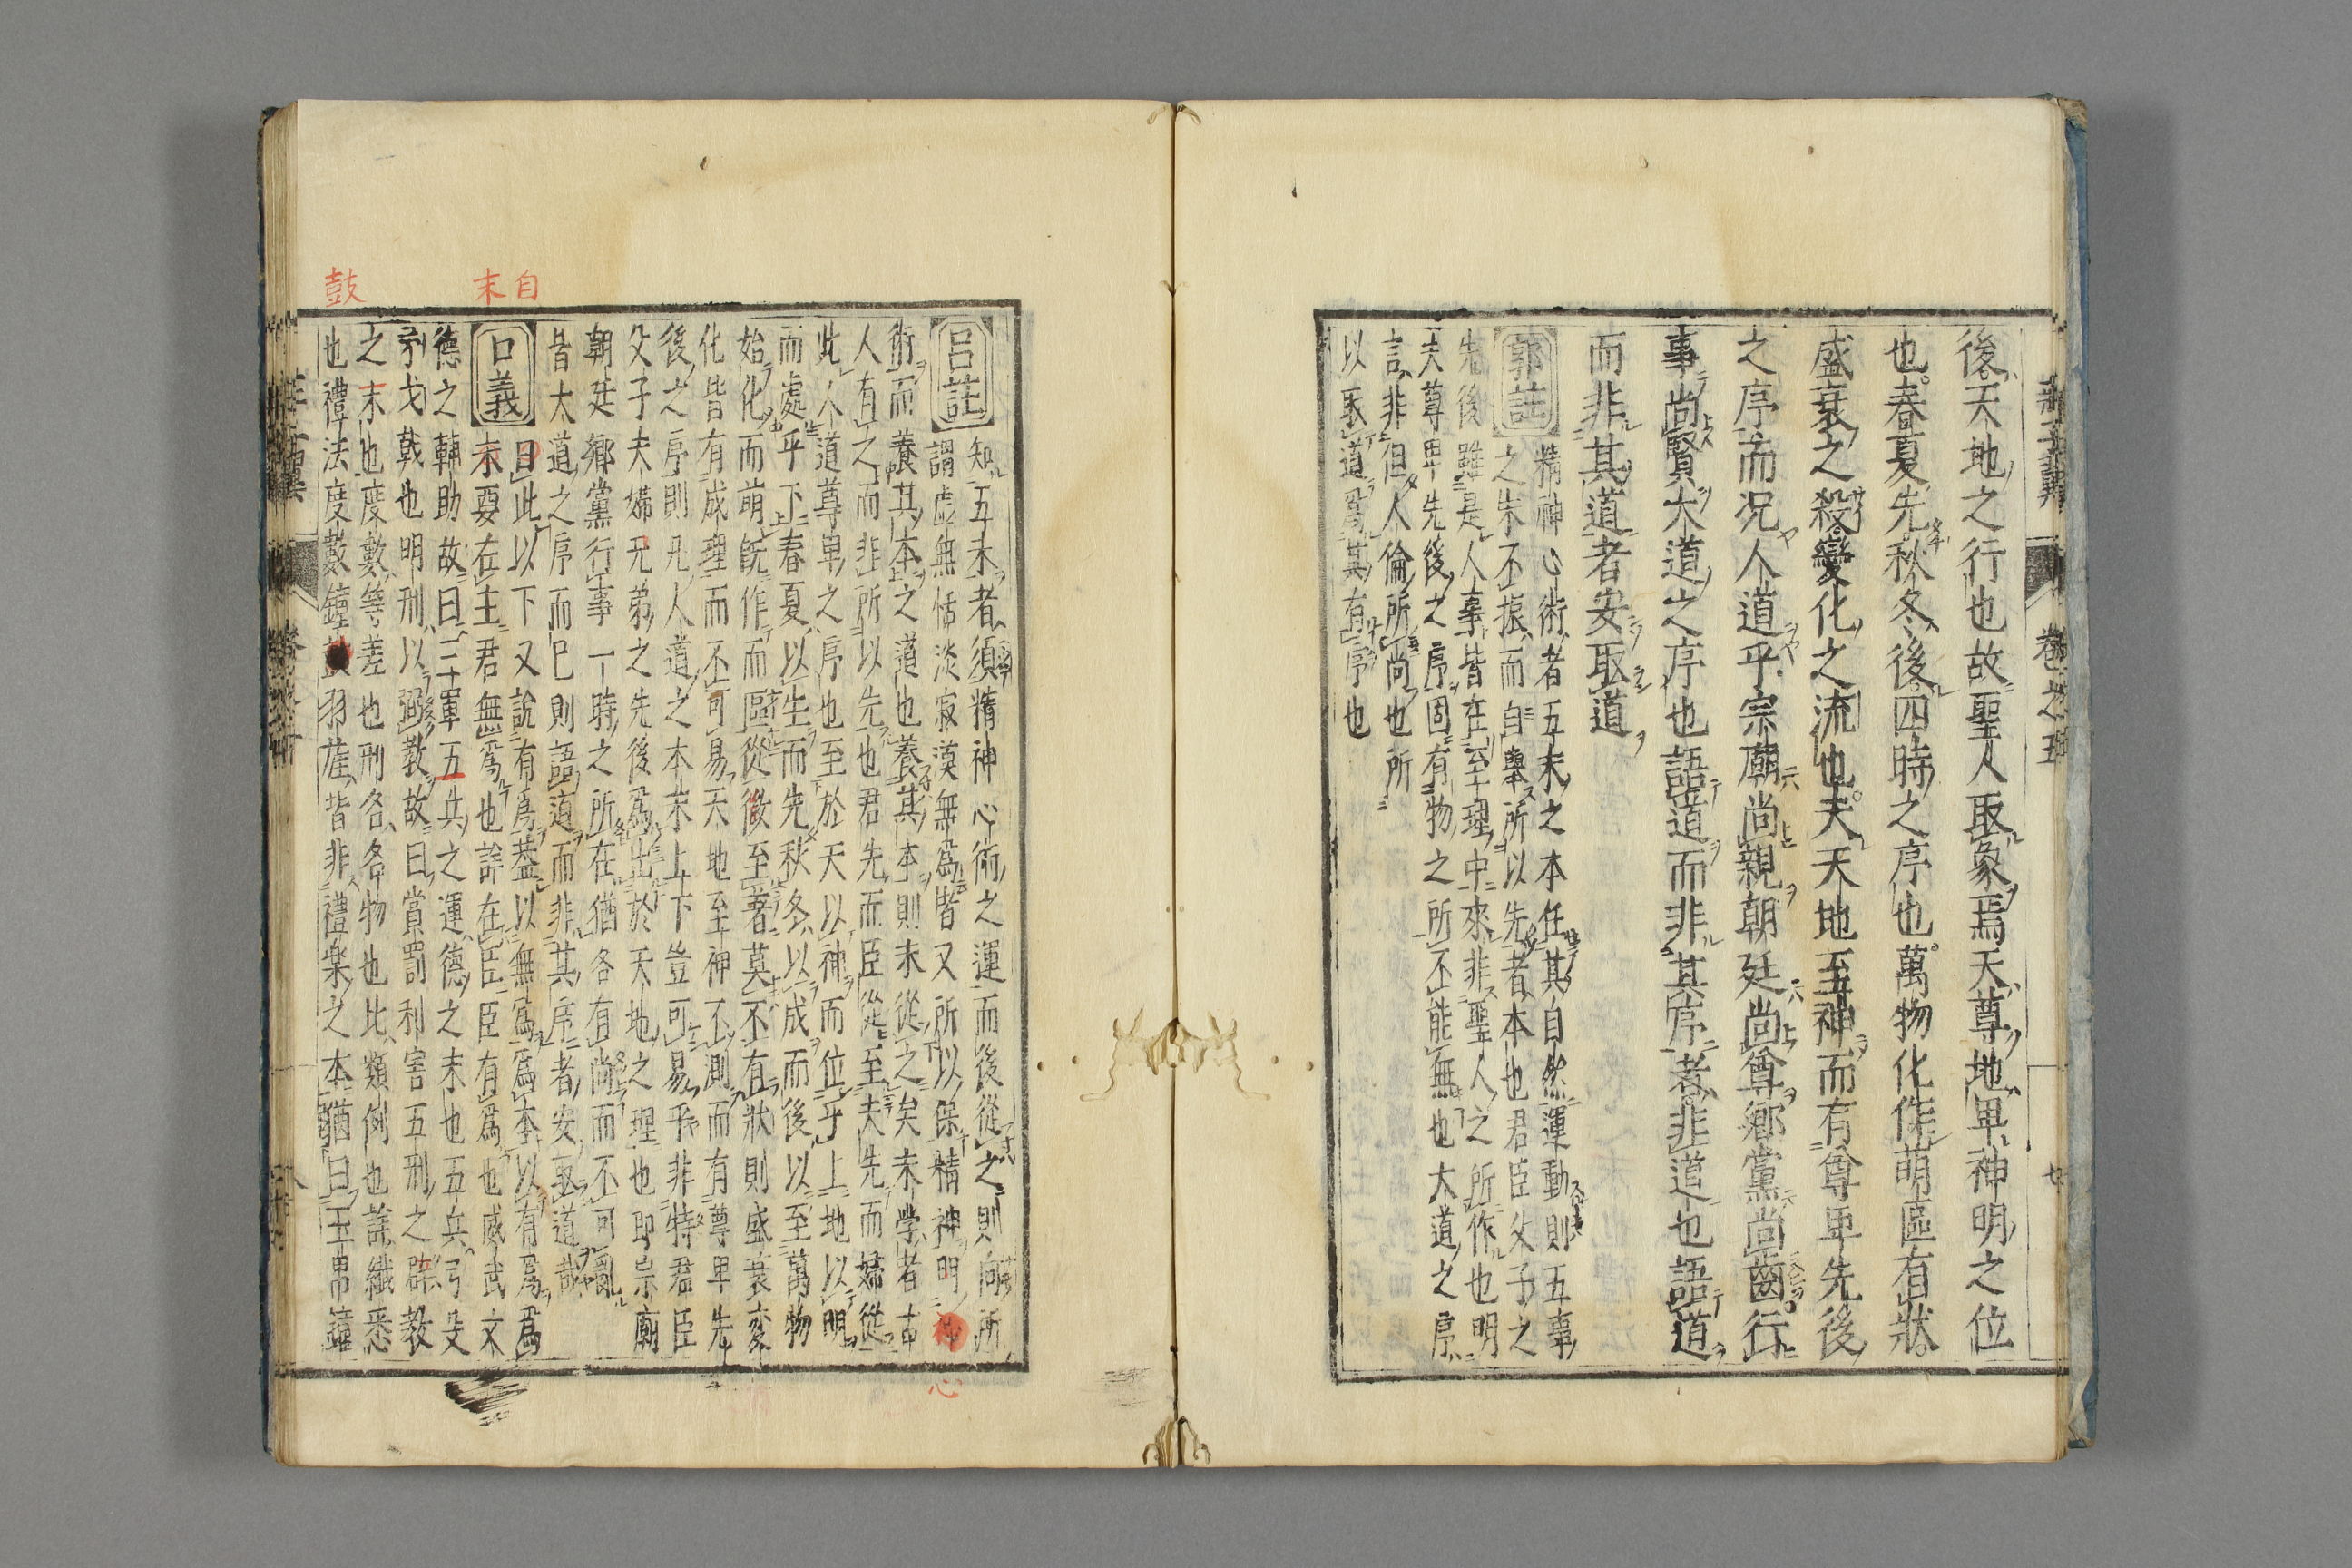 後天地之行也故聖人取象焉天尊地卑神明之位
也春夏先秋冬後四時之序也萬物化作萌區有狀
盛衰之殺變化之流也夫天地至神而有尊卑先後
之序而况人道乎宗廟尚親朝廷尚尊鄉黨尚齒行
事尚賢大道之序也語道而非其序者非道也語道
而非其道者安取道
郭註 精神心術者五末之本任其自然運動則五事
之末不振而自舉所以先者本也君臣父子之
先後雖是人事皆在至理中來非聖人之所作也明
夫尊卑先後之序固有物之所不能無也大道之序
言非但人倫所尚也所
以取道爲其有序也
呂註 知五末者須精神心術之運而後從之則向所
謂虛無恬淡寂漠無爲皆又所以保精神明
術而養其本之道也養其本則末從之矣末學者古
人有之而非所以先也君先而臣從至夫先而婦從
此人道尊卑之序也至於天以神而位乎上地以明
而處乎下春夏以生而先秋冬以成而後以至萬物
始化而萌既作而區從微至著莫不有狀則盛衰変
化皆有成理而不可易天地至神不測而有尊卑先
後之序則凡人道之本末上下豈可易乎非特君臣
父子夫婦兄弟之先後爲出於天地之理也即宗廟
朝廷鄉黨行事一時之所在猶各有尚而不可亂
皆大道之序而已則語道而非其序者安取道哉
口義 曰此以下又說有爲蓋以無爲爲本以有爲爲
末要在主君無爲也詳在臣臣有爲也威武文
德之輔助故曰三軍五兵之運德之末也五兵弓殳
矛戈戟也明刑以弼教故曰賞罰利害五刑之辟教
之末也度數等差也刑各各物也比類例也詳纖悉
也禮法度數鐘鼓羽旄皆非禮楽之本猶曰玉帛鐘
鼓
末
自
心
卷之五